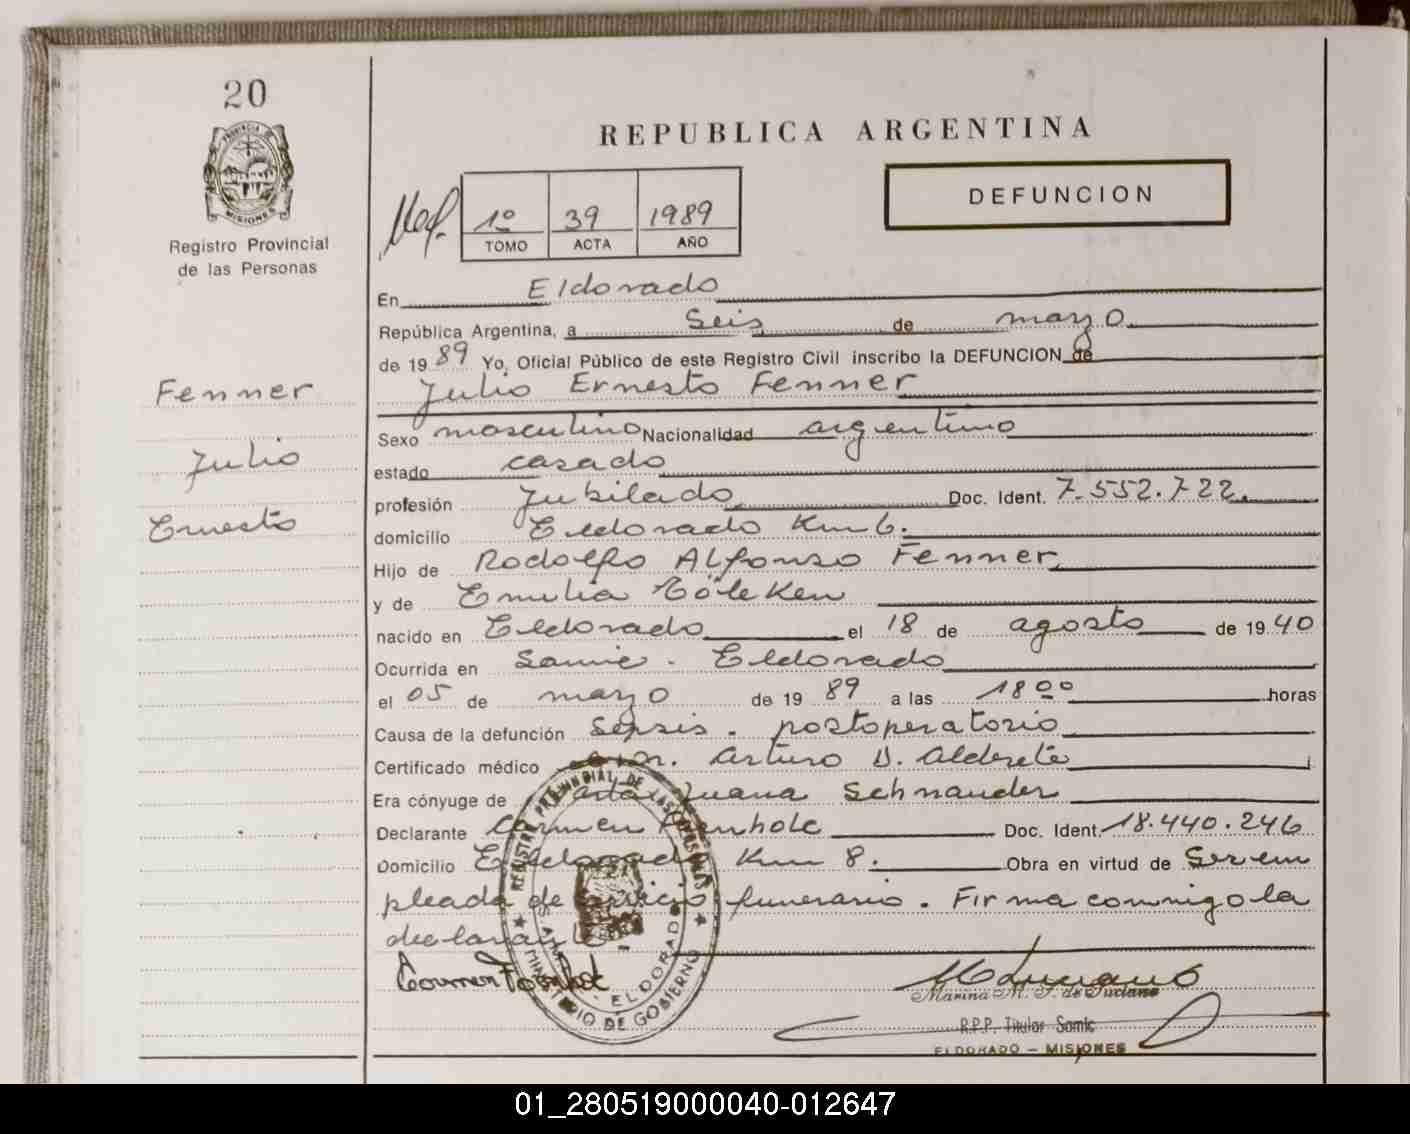 20
PROVINCIA DE
MISIONES
Registro Provincial
de las Personas
REPUBLICA ARGENTINA
DEFUNCION
1º 39 1989
TOMO ACTA AÑO
En Eldorado
República Argentina, a Seis de marzo
de 1989 Yo, Oficial Público de este Registro Civil inscribo la DEFUNCION de
Fenner
Julio Ernesto Fenner
Sexo masculino Nacionalidad argentino
Julio
estado casado
profesión Jubilado Doc. Ident. 7.552.722.
Ernesto
domicilio Eldorado Km 6.
Hijo de Rodolfo Alfonso Fenner
y de Emilia
nacido en Eldorado el 18 de agosto de 1940
Ocurrida en Samic. Eldorado
el 05 de marzo de 1989 a las 18 00 horas
Causa de la defunción Sepsis. postoperatorio
Certificado médico Dr. Arturo D. Alderete
Era cónyuge de Juana Schnauder
Declarante Carmen Doc. Ident. 18.440.246
Domicilio Eldorado Km 8. Obra en virtud de Ser em
pleada de servicio funerario. Firma conmigo la
declarante
Marina M. F. de Luciano
R.P.P. Titular Samic
ELDORADO - MISIONES
REGISTRO PROVINCIAL DE LAS PERSONAS
ELDORADO
MINISTERIO DE GOBIERNO
01_280519000040-012647